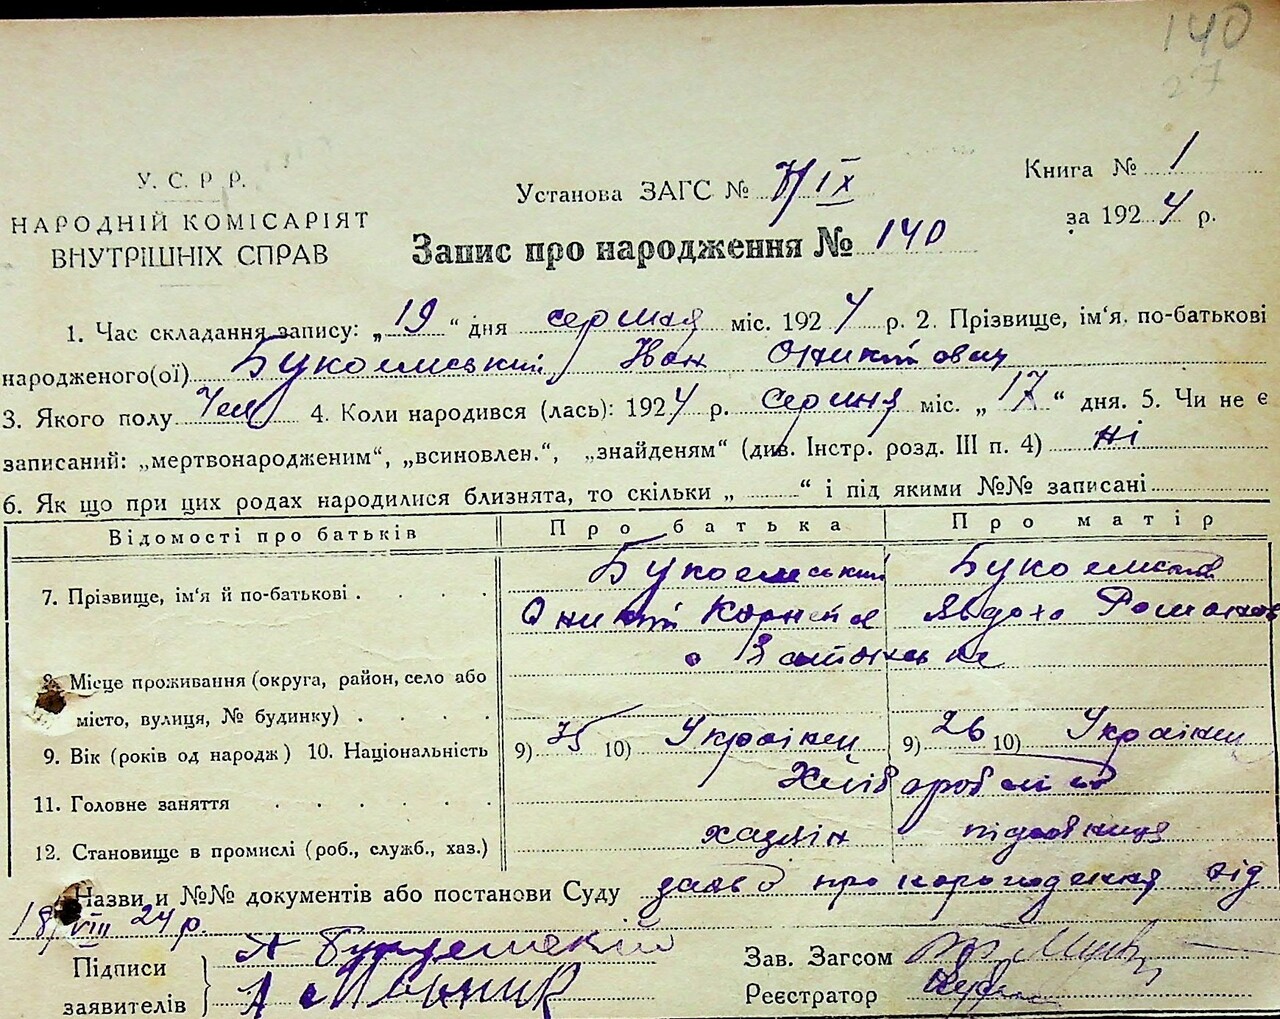 140
27
У. С. Р. Р.
НАРОДНІЙ КОМІСАРІЯТ
ВНУТРІШНІХ СПРАВ
Установа ЗАГС № IX
Книга № 1
за 1924 р.
Запис про народження № 140
1. Час складання запису: „19“ дня серпня міс. 1924 р. 2. Прізвище, ім'я, по-батькові
народженого(ої) Букоемський Іван Оникійович
3. Якого полу Чол 4. Коли народився (лась): 1924 р. серпня міс. „17“ дня. 5. Чи не є
записаний: „мертвонародженим“, „всиновлен.“, „знайденям“ (див. Інстр. розд. III п. 4) ні
6. Як що при цих родах народилися близнята, то скільки „ “ і під якими №№ записані
Відомості про батьків Про батька Про матір
7. Прізвище, ім'я й по-батькові . . . . Букоемський Букоемська
Оникій Явдоха
8. Місце проживання (округа, район, село або
місто, вулиця, № будинку) . . . .
9. Вік (років од народж) 10. Національність 9) 10) Українец 9) 26 10) Українец
11. Головне заняття . . . . . . Хліборобство
12. Становище в промислі (роб., служб., хаз.) хазяїн
Назви и №№ документів або постанови Суду заява про народження від
18/VIII 24 р.
Підписи
заявителів
Мельник
Зав. Загсом
Реєстратор